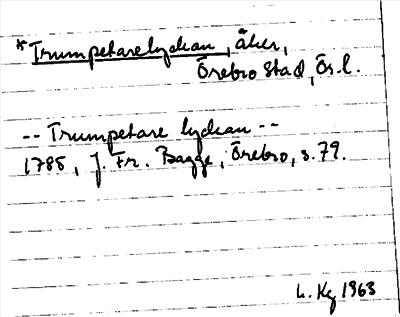 *Trumpetarelyckan, åker,
Örebro Stad, Ör.l.
-- Trumpetare lyckan --
1785, J. Fr. Bagge, Örebro, s. 79.
L. Kg 1963